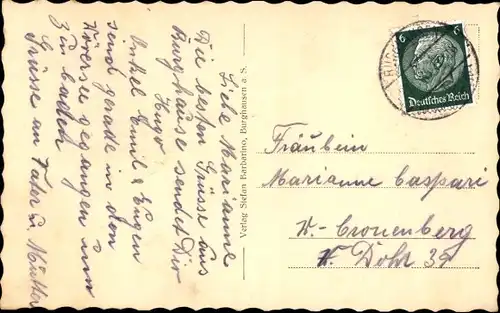 Liebe Marianne
Die besten Grüsse aus
Burghause sendet Dir
Hugo
Onkel Emil & Eugen
sind gerade in den
Wöresee gegangen um
zu baden
Grüsse an Vater u. Mutter
Verlag Stefan Barbarino, Burghausen a. S.
6 6
Deutsches Reich
Fräulein
Marianne Caspari
W.-Cronenberg
K. Dohr 39